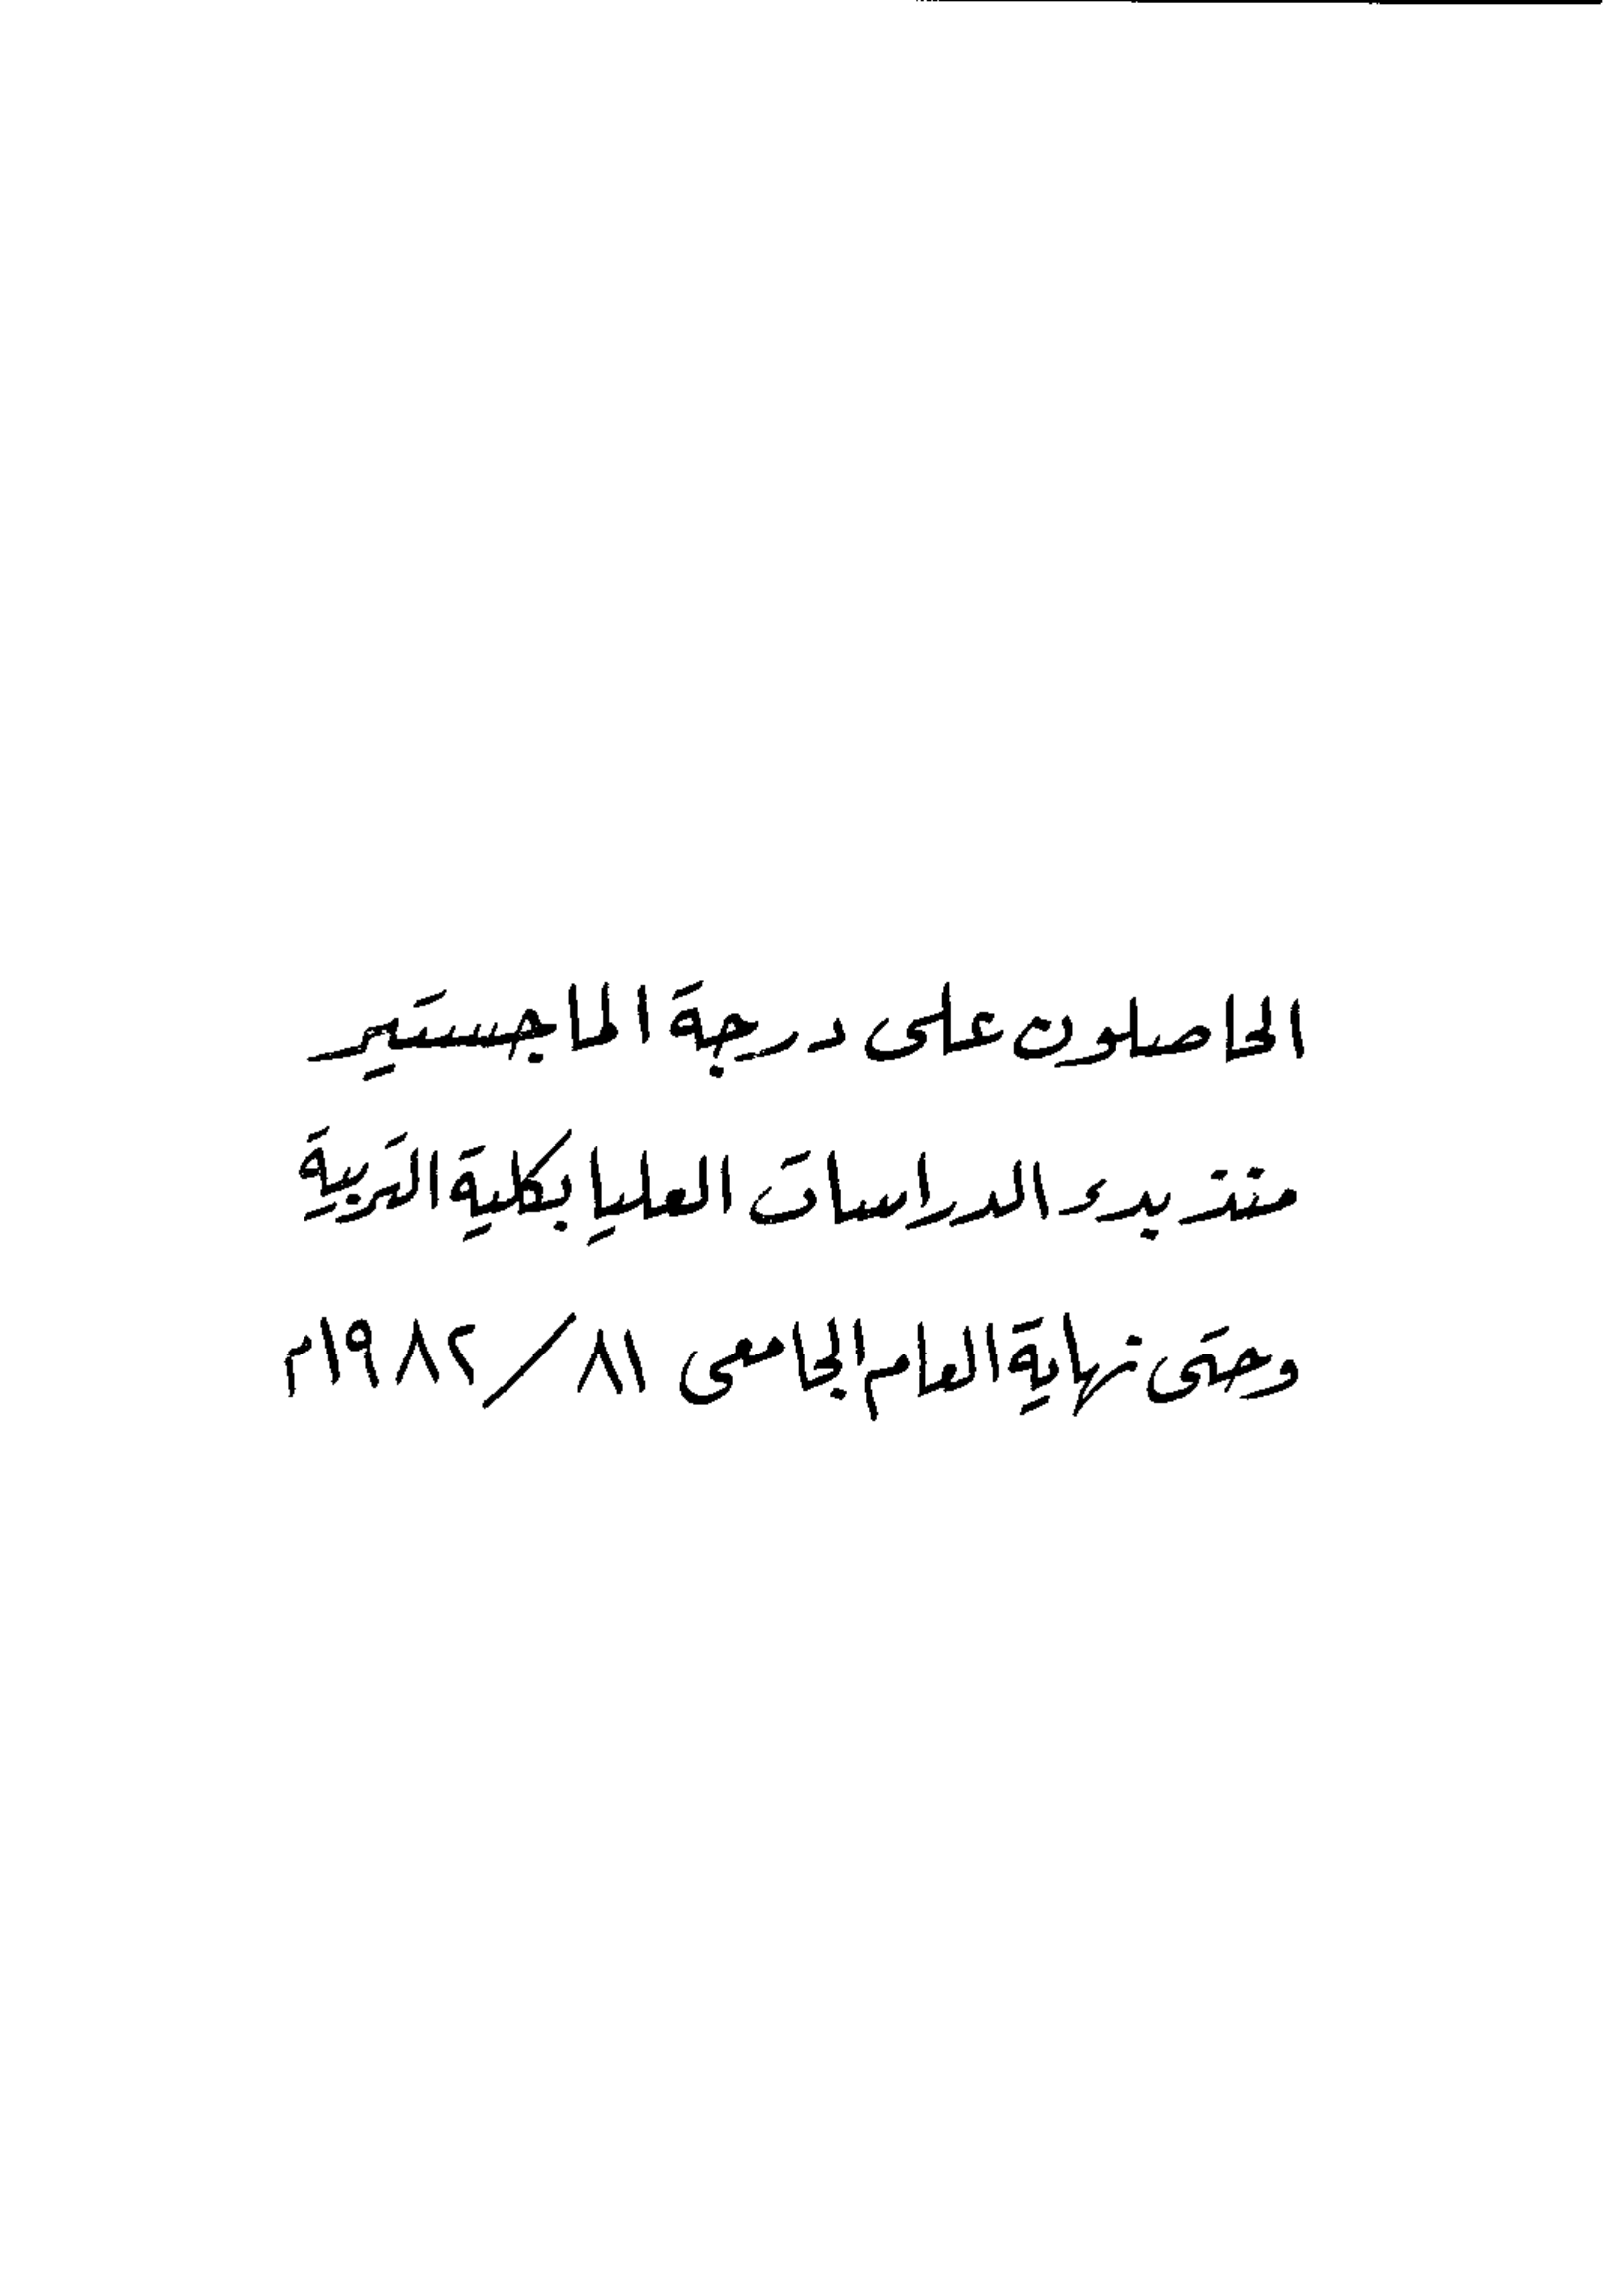 الحاصلون على درجة الماجستير
منذ بدء الدراسات العليا بكلية التربية
وحتى نهاية العام الجامعى ٨١/١٩٨٢م